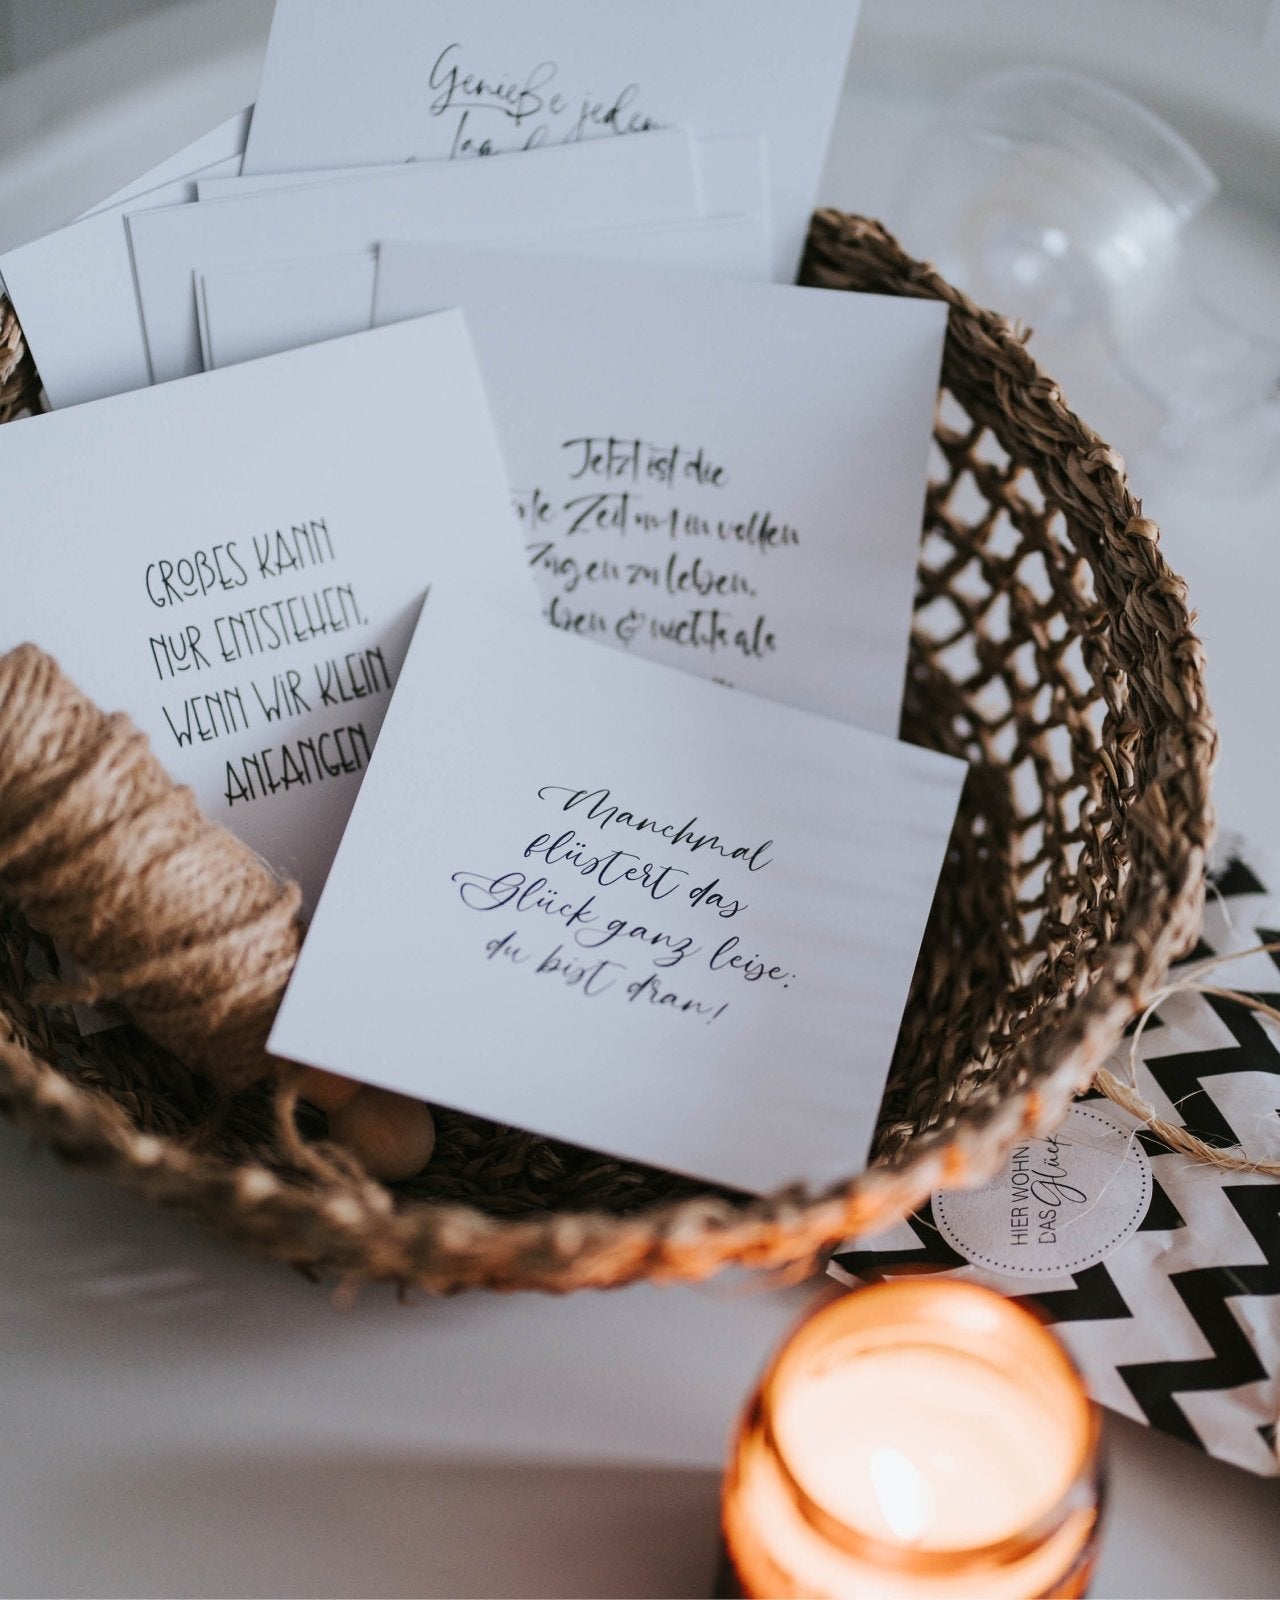 Genieße jeden
Tag
Jetzt ist die
Zeit um in vollen
Zügen zu leben.
& nichts als
GROßES KANN
NUR ENTSTEHEN,
WENN WIR KLEIN
ANFANGEN
Manchmal
flüstert das
Glück ganz leise:
du bist dran!
HIER WOHN
DAS Glück